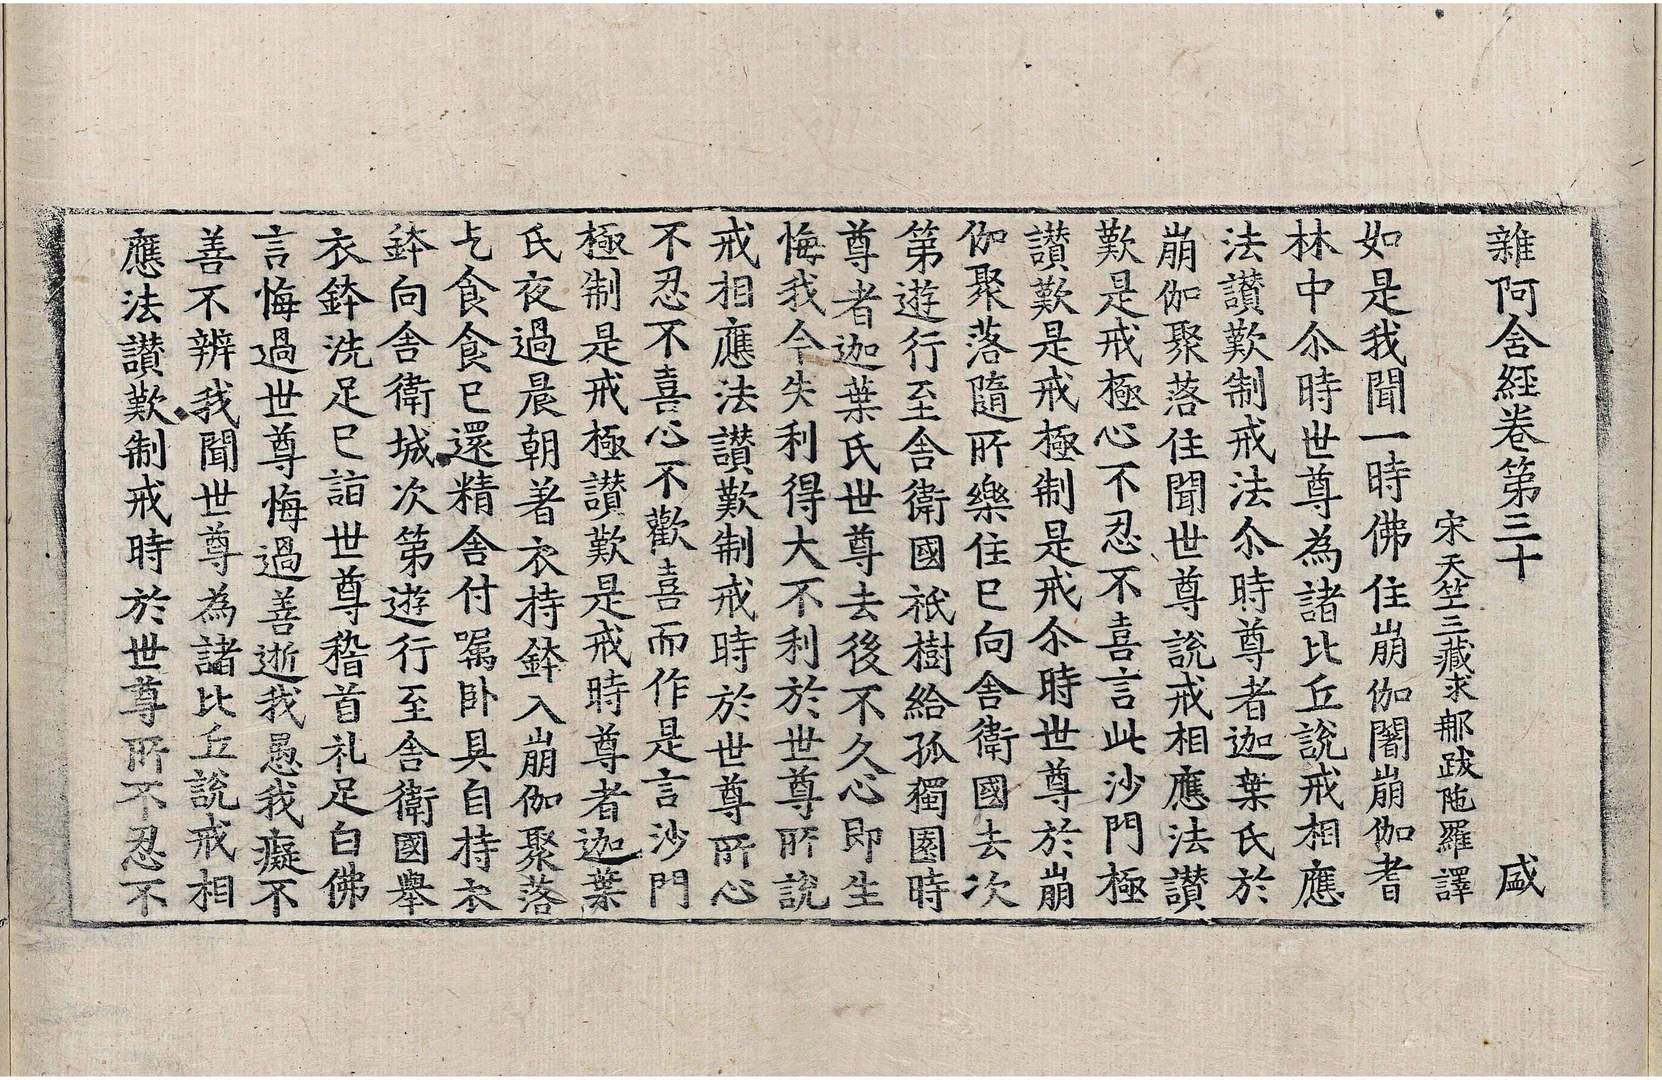 雜阿含經卷第三十 盛
宋天竺三藏求那跋陁羅譯
如是我聞一時佛住崩伽闍崩伽耆
林中尒時世尊為諸比丘說戒相應
法讃歎制戒法尒時尊者迦葉氏於
崩伽聚落住聞世尊說戒相應法讃
歎是戒極心不忍不喜言此沙門極
讃歎是戒極制是戒尒時世尊於崩
伽聚落隨所樂住已向舍衛國去次
第遊行至舍衛國祇樹給孤獨園時
尊者迦葉氏世尊去後不久心即生
悔我今失利得大不利於世尊所說
戒相應法讃歎制戒時於世尊所心
不忍不喜心不歡喜而作是言沙門
極制是戒極讃歎是戒時尊者迦葉
氏夜過晨朝著衣持鉢入崩伽聚落
乞食食已還精舍付嘱卧具自持衣
鉢向舍衛城次第遊行至舍衛國舉
衣鉢洗足已詣世尊稽首礼足白佛
言悔過世尊悔過善逝我愚我癡不
善不辨我聞世尊為諸比丘說戒相
應法讃歎制戒時於世尊所不忍不